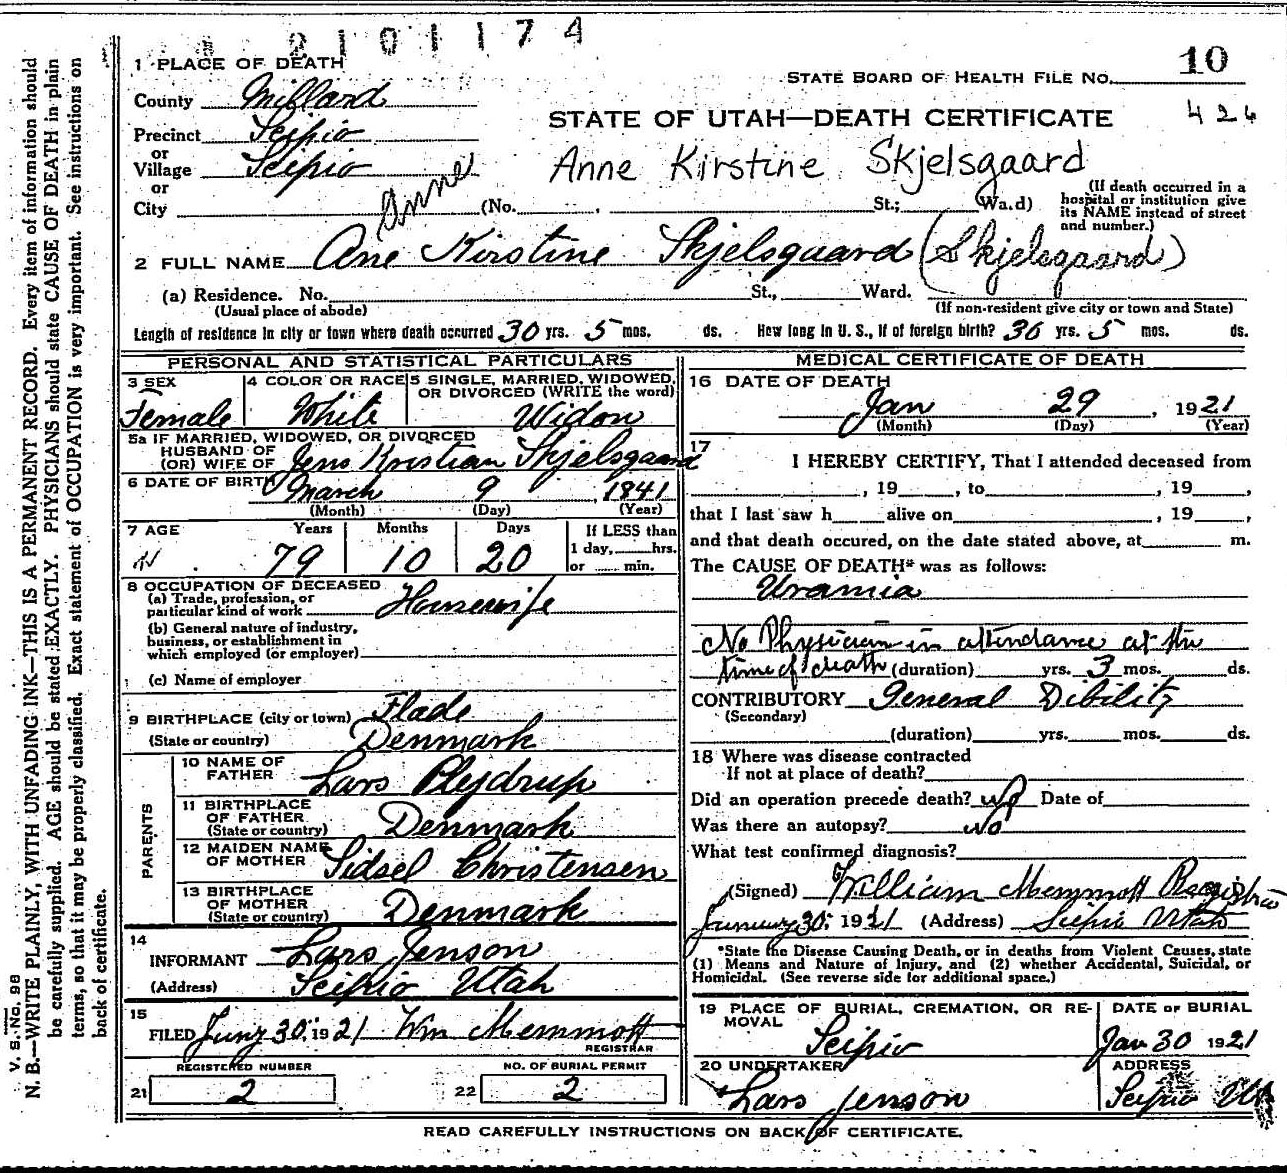 2101174
10
1 PLACE OF DEATH
STATE BOARD OF HEALTH FILE No.
County Millard
STATE OF UTAH—DEATH CERTIFICATE
426
Precinct Scipio
or
Village Scipio
Anne
Anne Kirstine Skjelsgaard
or
City (No. , St.; Wa.d)
(If death occurred in a hospital or institution give its NAME instead of street and number.)
2 FULL NAME Ane Kirstine Skjelsguard (Skjelsgaard)
(a) Residence. No. St., Ward.
(Usual place of abode) (If non-resident give city or town and State)
Length of residence in city or town where death occurred 30 yrs. 5 mos. ds. How long in U. S., if of foreign birth? 36 yrs. 5 mos. ds.
PERSONAL AND STATISTICAL PARTICULARS
3 SEX
Female
4 COLOR OR RACE
White
5 SINGLE, MARRIED, WIDOWED, OR DIVORCED (WRITE the word)
Widow
5a IF MARRIED, WIDOWED, OR DIVORCED
HUSBAND OF
(OR) WIFE OF Jens Kristian Skjelsgaard
6 DATE OF BIRTH March 9, 1841
(Month) (Day) (Year)
7 AGE Years Months Days If LESS than
79 10 20 1 day, hrs.
or min.
8 OCCUPATION OF DECEASED
(a) Trade, profession, or
particular kind of work Housewife
(b) General nature of industry,
business, or establishment in
which employed (or employer)
(c) Name of employer
9 BIRTHPLACE (city or town) Flade
(State or country) Denmark
PARENTS
10 NAME OF
FATHER Lars Plejdrup
11 BIRTHPLACE
OF FATHER
(State or country) Denmark
12 MAIDEN NAME
OF MOTHER Sidsel Christensen
13 BIRTHPLACE
OF MOTHER
(State or country) Denmark
14
INFORMANT Lars Jenson
(Address) Scipio Utah
15
FILED 30, 1921 Wm Memmott
REGISTRAR
REGISTERED NUMBER
21 2
NO. OF BURIAL PERMIT
22 2
MEDICAL CERTIFICATE OF DEATH
16 DATE OF DEATH
Jan 29, 1921
(Month) (Day) (Year)
17
I HEREBY CERTIFY, That I attended deceased from
, 19 , to , 19 ,
that I last saw h alive on , 19 ,
and that death occured, on the date stated above, at m.
The CAUSE OF DEATH* was as follows:
Uramia
No Physician in attendance at the
time of death (duration) yrs. 3 mos. ds.
CONTRIBUTORY General Dibility
(Secondary)
(duration) yrs. mos. ds.
18 Where was disease contracted
If not at place of death?
Did an operation precede death? no Date of
Was there an autopsy? No
What test confirmed diagnosis?
(Signed) William Memmott Registrar
30, 1921 (Address) Scipio Utah
*State the Disease Causing Death, or in deaths from Violent Causes, state
(1) Means and Nature of Injury, and (2) whether Accidental, Suicidal, or
Homicidal. (See reverse side for additional space.)
19 PLACE OF BURIAL, CREMATION, OR RE-
MOVAL Scipio
DATE OF BURIAL
Jan 30 1921
20 UNDERTAKER
Lars Jenson
ADDRESS
Scipio Ut
READ CAREFULLY INSTRUCTIONS ON BACK OF CERTIFICATE.
V. S. No. 98
N. B.—WRITE PLAINLY, WITH UNFADING INK—THIS IS A PERMANENT RECORD. Every item of information should
be carefully supplied. AGE should be stated EXACTLY. PHYSICIANS should state CAUSE OF DEATH in plain
terms, so that it may be properly classified. Exact statement of OCCUPATION is very important. See instructions on
back of certificate.